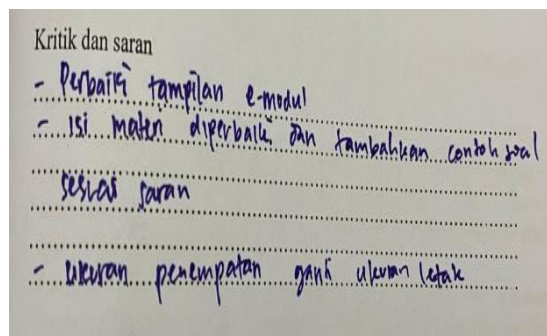 Kritik dan saran
- Perbaiki tampilan e-modul
- Isi materi diperbaiki dan tambahkan contoh soal
sesuai saran
- ukuran penempatan ganti ukuran letak